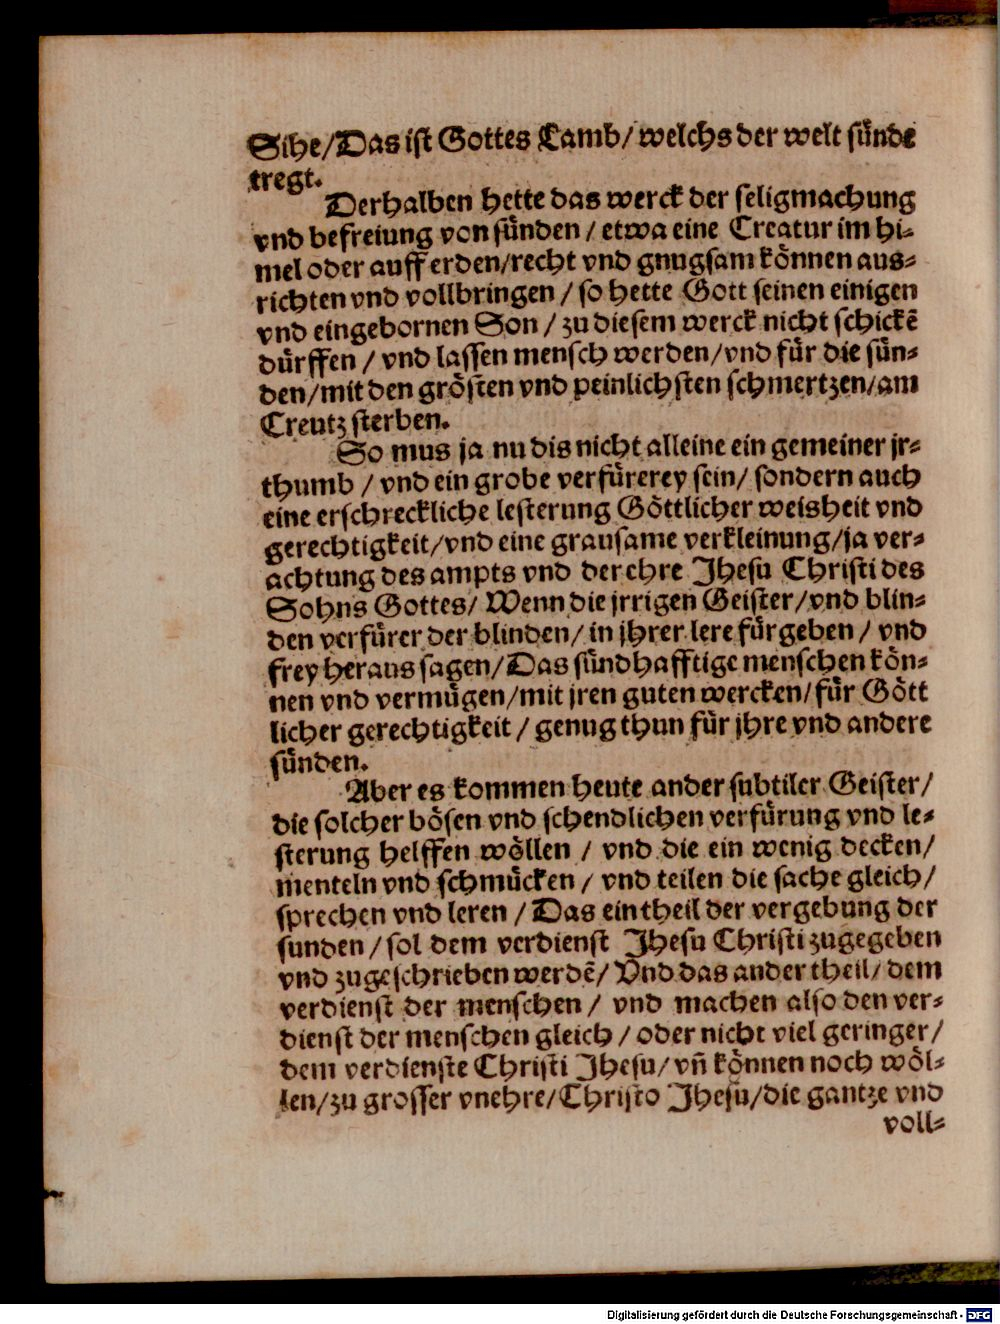 Sihe/Das ist Gottes Lamb/ welchs der welt sünde
tregt.
Derhalben hette das werck der seligmachung
vnd befreiung von sünden / etwa eine Creatur im hi-
mel oder auff erden/recht vnd gnugsam können aus-
richten vnd vollbringen / so hette Gott seinen einigen
vnd eingebornen Son / zu diesem werck nicht schickẽ
dürffen / vnd lassen mensch werden/vnd für die sün-
den/mit den grösten vnd peinlichsten schmertzen/am
Creutz sterben.
So mus ja nu dis nicht alleine ein gemeiner jr-
thumb / vnd ein grobe verfürerey sein/ sondern auch
eine erschreckliche lesterung Göttlicher weisheit vnd
gerechtigkeit/vnd eine grausame verkleinung/ja ver-
achtung des ampts vnd der ehre Jhesu Christi des
Sohns Gottes/ Wenn die jrrigen Geister/vnd blin-
den verfürer der blinden/ in jhrer lere fürgeben / vnd
frey heraus sagen/Das sündhafftige menschen kön-
nen vnd vermügen/mit jren guten wercken/für Gött
licher gerechtigkeit / genug thun für jhre vnd andere
sünden.
Aber es kommen heute ander subtiler Geister/
die solcher bösen vnd schendlichen verfürung vnd le-
sterung helffen wöllen / vnd die ein wenig decken/
menteln vnd schmücken / vnd teilen die sache gleich/
sprechen vnd leren / Das ein theil der vergebung der
sunden / sol dem verdienst Jhesu Christi zugegeben
vnd zugeschrieben werdẽ/ Vnd das ander theil/ dem
verdienst der menschen / vnd machen also den ver-
dienst der menschen gleich / oder nicht viel geringer/
dem verdienste Christi Jhesu/ vñ können noch wöl-
len/zu grosser vnehre/Christo Jhesu/die gantze vnd
voll-
Digitalisierung gefördert durch die Deutsche Forschungsgemeinschaft - DFG